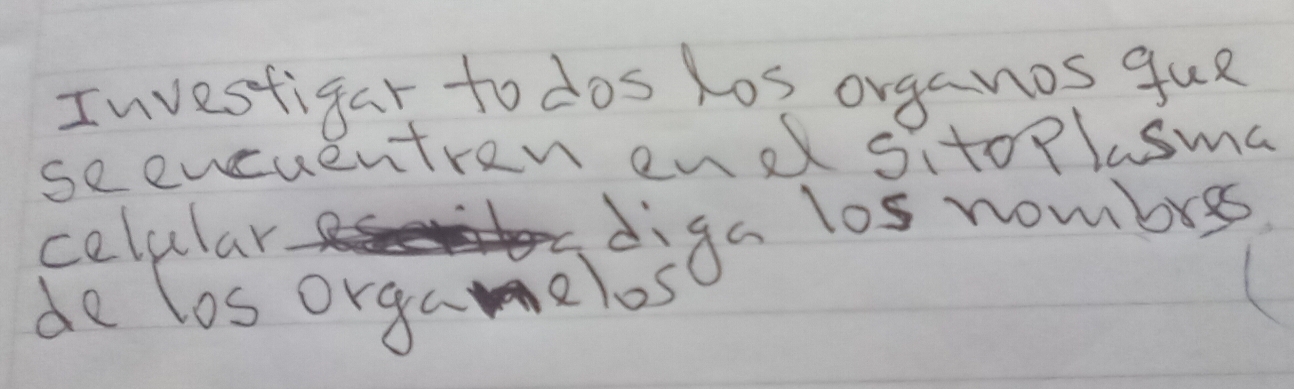 Investigar todos los organos que
se encuentren en el sitoplasma
celular diga los nombres
de los organelos